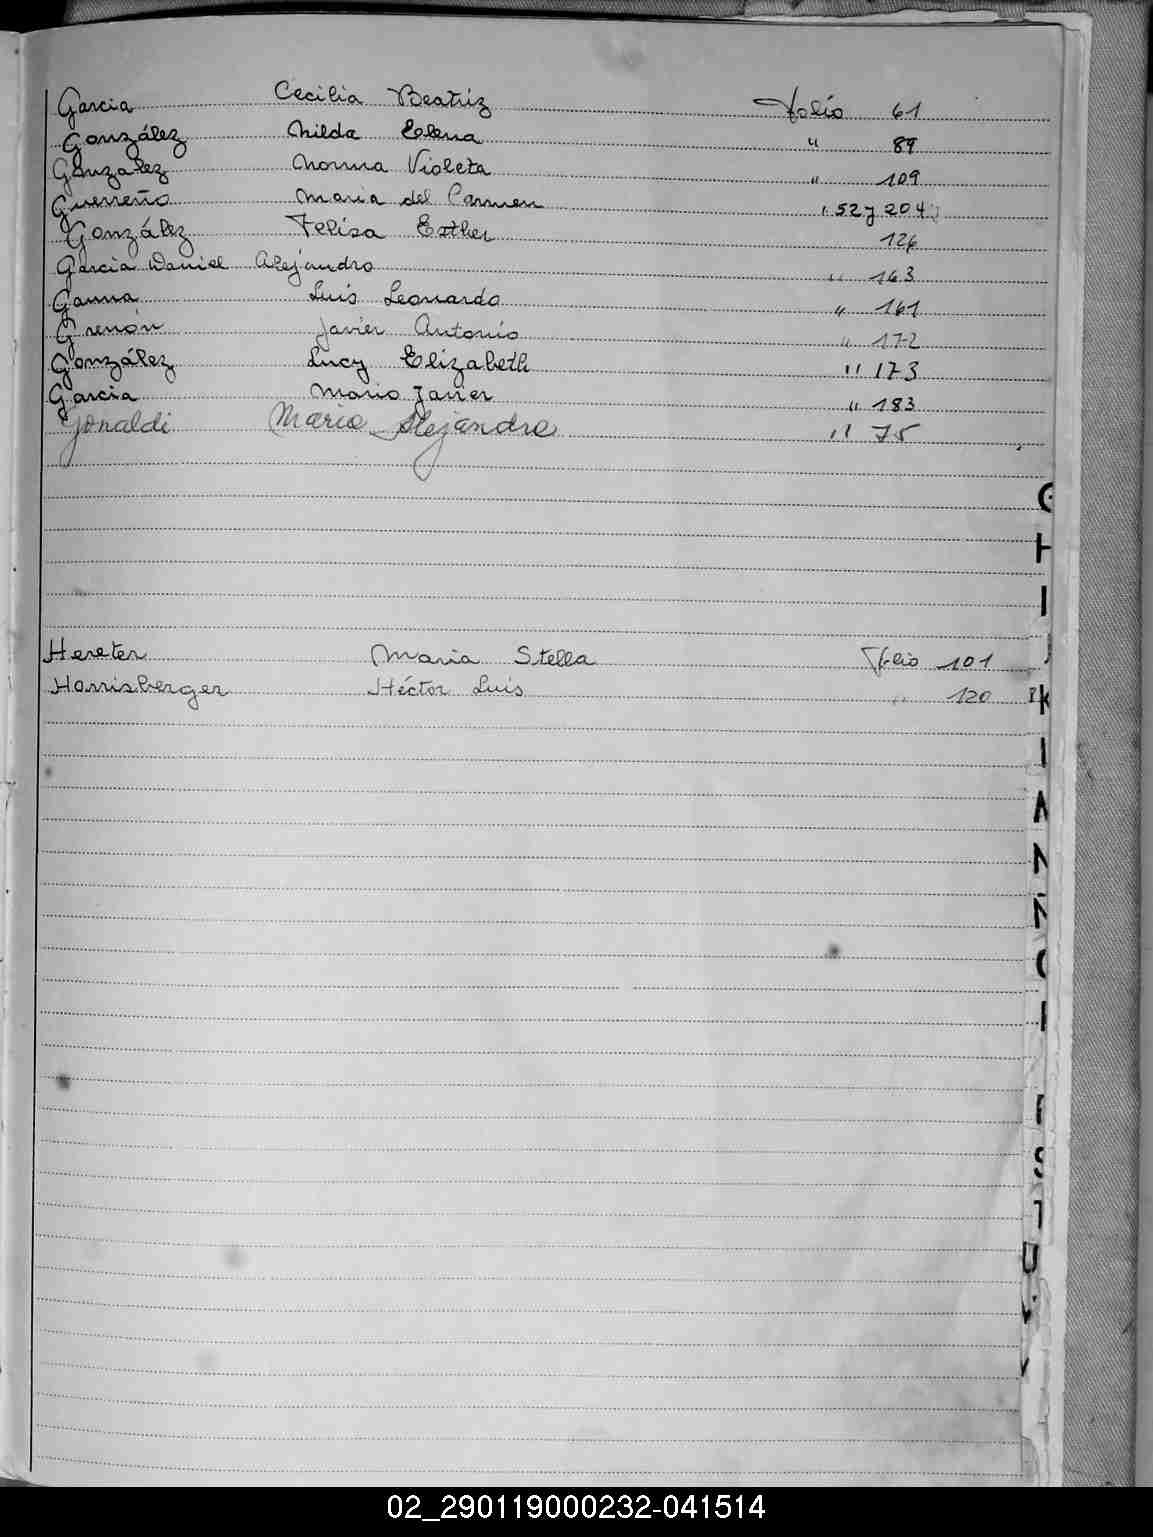 Garcia Cecilia Beatriz folio 61
González Nilda Elena " 89
Gonzalez Norma Violeta " 109
Guerreño Maria del Carmen " 52 y 204
González Feliza Esther 126
Garcia Daniel Alejandro " 163
Gauna Luis Leonardo " 161
Grenón Javier Antonio " 172
González Lucy Elizabeth " 173
Garcia Mario Javier " 183
Gonaldi Mario Alejandro " 75
G
H
I
Hereter Maria Stella Folio 101
J
Harrisberger Héctor Luis " 120
K
N
Ñ
S
T
U
V
02_290119000232-041514